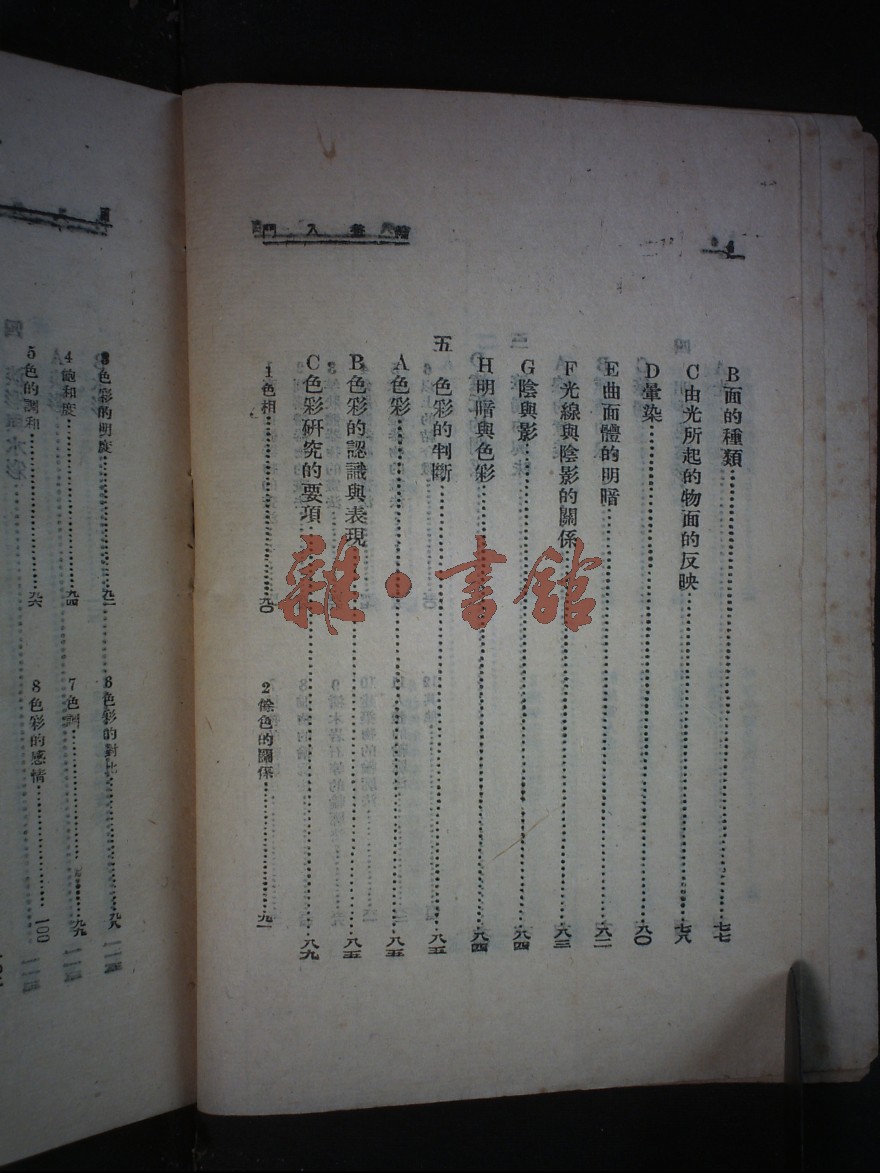 繪畫入門
4
B面的種類……七七
C由光所起的物面的反映……七八
D暈染……八〇
E曲面體的明暗……八二
F光線與陰影的關係……八三
G陰與影……八四
H明暗與色彩……八四
五 色彩的判斷……八五
A色彩……八五
B色彩的認識與表現……八五
C色彩研究的要項……八九
1色相……九〇 2餘色的關係……九一
3色彩的明度……九二 6色彩的對比……九八
4飽和度……九四 7色調……九九
5色的調和……九六 8色彩的感情……100
雜·書館